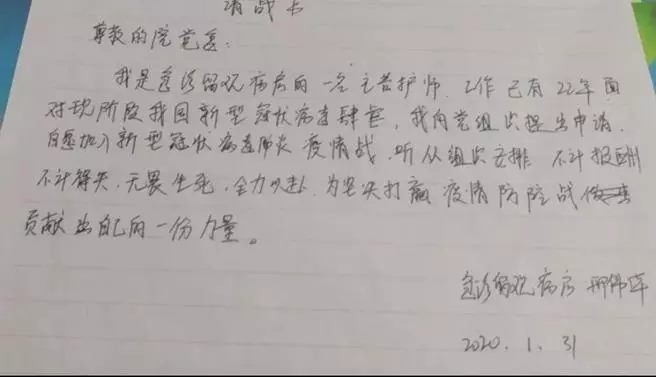 请战书
尊敬的院党委:
我是急诊留观病房的一名主管护师,工作已有22年面
对现阶段我国新型冠状病毒肆虐,我向党组织提出申请,
自愿加入新型冠状病毒肺炎疫情战,听从组织安排 不计报酬
不计得失,无畏生死,全力以赴,为坚决打赢疫情防院战
贡献出自己的一份力量。
急诊留观病房 邢
2020.1.31